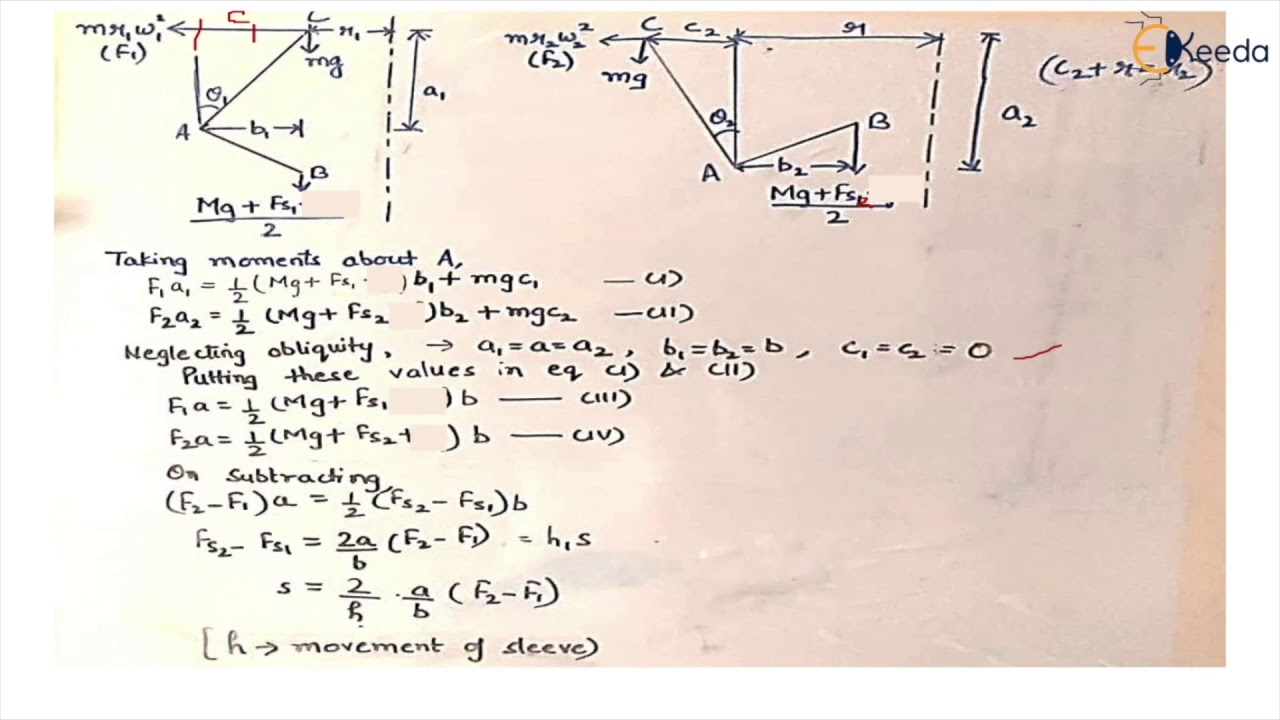 mr₁ω₁²
(F₁)
C
C
r₁
mg
θ₁
a₁
A
b₁
B
Mg + Fs₁.
2
mr₂ω₂²
(F₂)
C
c₂
r
mg
θ₂
B
A
b₂
a₂
Mg+Fs
2
(c₂+r=r₂)
Keeda
Taking moments about A,
F₁a₁ = 1/2 (Mg+ Fs₁. )b₁+ mgc₁ —(I)
F₂a₂ = 1/2 (Mg+ Fs₂ )b₂ + mgc₂ —(II)
Neglecting obliquity, → a₁=a=a₂, b₁=b₂=b, c₁=c₂=0
Putting these values in eq (I) & (II)
F₁a = 1/2 (Mg+ Fs₁ )b — (III)
F₂a = 1/2 (Mg+ Fs₂+ ) b — (IV)
On subtracting,
(F₂-F₁)a = 1/2 (Fs₂- Fs₁)b
Fs₂- Fs₁ = 2a/b (F₂-F₁) = h,s
s = 2/h . a/b (F₂-F₁)
[h → movement of sleeve)